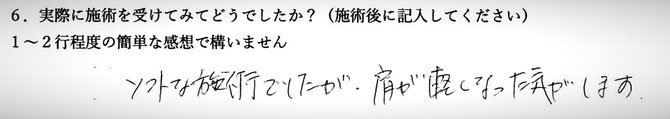 6．実際に施術を受けてみてどうでしたか？（施術後に記入してください）
1～2行程度の簡単な感想で構いません
ソフトな施術でしたが、肩が軽くなった気がします